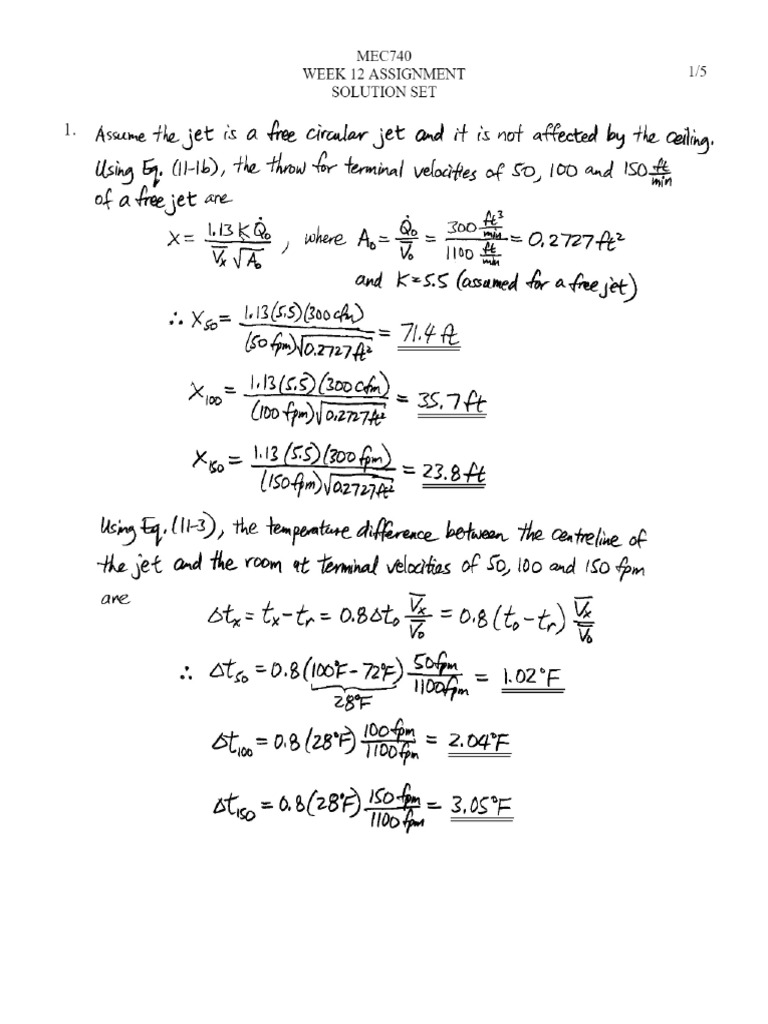 MEC740
WEEK 12 ASSIGNMENT
SOLUTION SET
1/5
1. Assume the jet is a free circular jet and it is not affected by the ceiling.
Using Eq. (11-1b), the throw for terminal velocities of 50, 100 and 150 ft/min
of a free jet are
X = 1.13 K Q̇₀ / (V̄ₓ √A₀) , where A₀ = Q̇₀/V̄₀ = 300 ft³/min / 1100 ft/min = 0.2727 ft²
and K = 5.5 (assumed for a free jet)
∴ X₅₀ = 1.13(5.5)(300 cfm) / (50 fpm)√0.2727 ft² = 71.4 ft
X₁₀₀ = 1.13(5.5)(300 cfm) / (100 fpm)√0.2727 ft² = 35.7 ft
X₁₅₀ = 1.13(5.5)(300 fpm) / (150 fpm)√0.2727 ft² = 23.8 ft
Using Eq. (11-3), the temperature difference between the centreline of
the jet and the room at terminal velocities of 50, 100 and 150 fpm
are
Δtₓ = tₓ - tᵣ = 0.8 Δt₀ V̄ₓ/V̄₀ = 0.8 (t₀ - tᵣ) V̄ₓ/V̄₀
∴ Δt₅₀ = 0.8 (100°F - 72°F) 50 fpm / 1100 fpm = 1.02°F
28°F
Δt₁₀₀ = 0.8 (28°F) 100 fpm / 1100 fpm = 2.04°F
Δt₁₅₀ = 0.8 (28°F) 150 fpm / 1100 fpm = 3.05°F